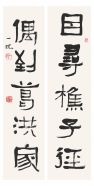 因尋樵子徑
偶到葛洪家